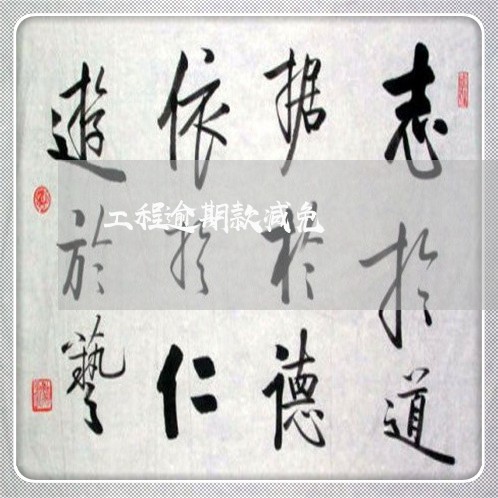 志於道
据於德
依於仁
遊於藝
工程逾期款减免